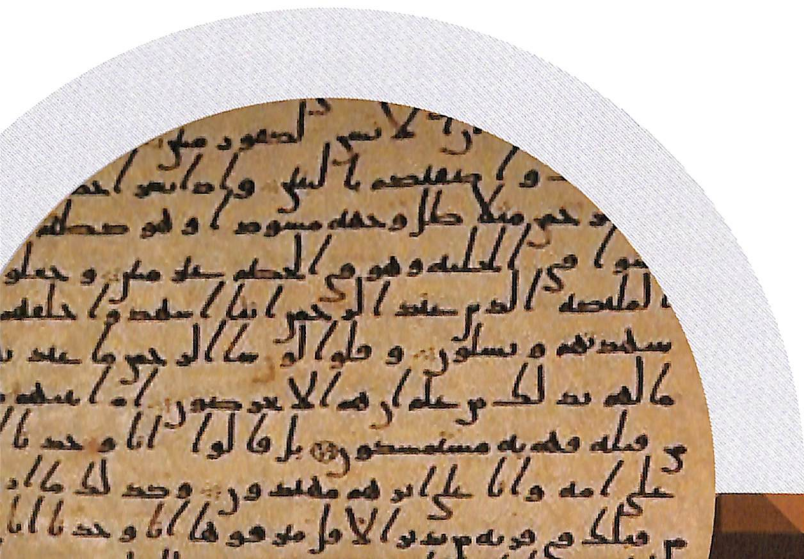 الانسن لكفور مبين
و اصفيكم بالبنين واذا بشر احد
للرحمن مثلا ظل وجهه مسودا و هو كظيم
ينشوا في الحليه وهو في الخصم غير مبين و جعلو
الملئكه الذين عند الرحمن انثا اشهدوا خلقهم
شهدتهم و يسلون و قالوا لو شا الرحمن ما عبد
ما لهم بذلك من علم ان هم الا يخرصون ام اتينهم
من قبله فهم به مستمسكون بل قالوا انا وجدنا ا
على امه وانا على اثرهم مهتدون وكذلك ما ار
من قبلك في قريه من نذير الا قال مترفوها انا وجدنا ابا